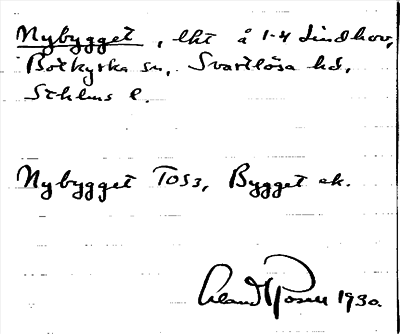 Nybygget, lht å 1-4 Lindhov,
Botkyrka sn, Svartlösa hd,
Sthlms l.
Nybygget TOS3, Bygget ek.
1930.